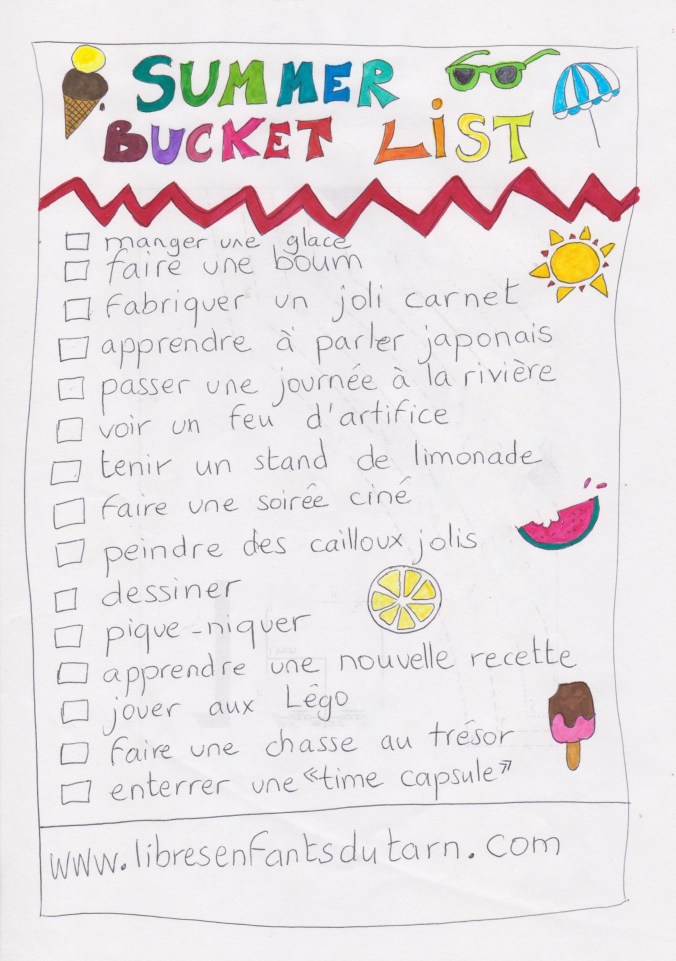 SUMMER
BUCKET LiST
manger une glace
faire une boum
fabriquer un joli carnet
apprendre à parler japonais
passer une journée à la rivière
voir un feu d'artifice
tenir un stand de limonade
faire une soirée ciné
peindre des cailloux jolis
dessiner
pique-niquer
apprendre une nouvelle recette
jouer aux Légo
faire une chasse au trésor
enterrer une «time capsule»
www.libresenfantsdutarn.com